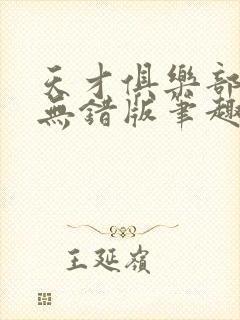 天才俱樂部
無錯版筆趣
王延嶺